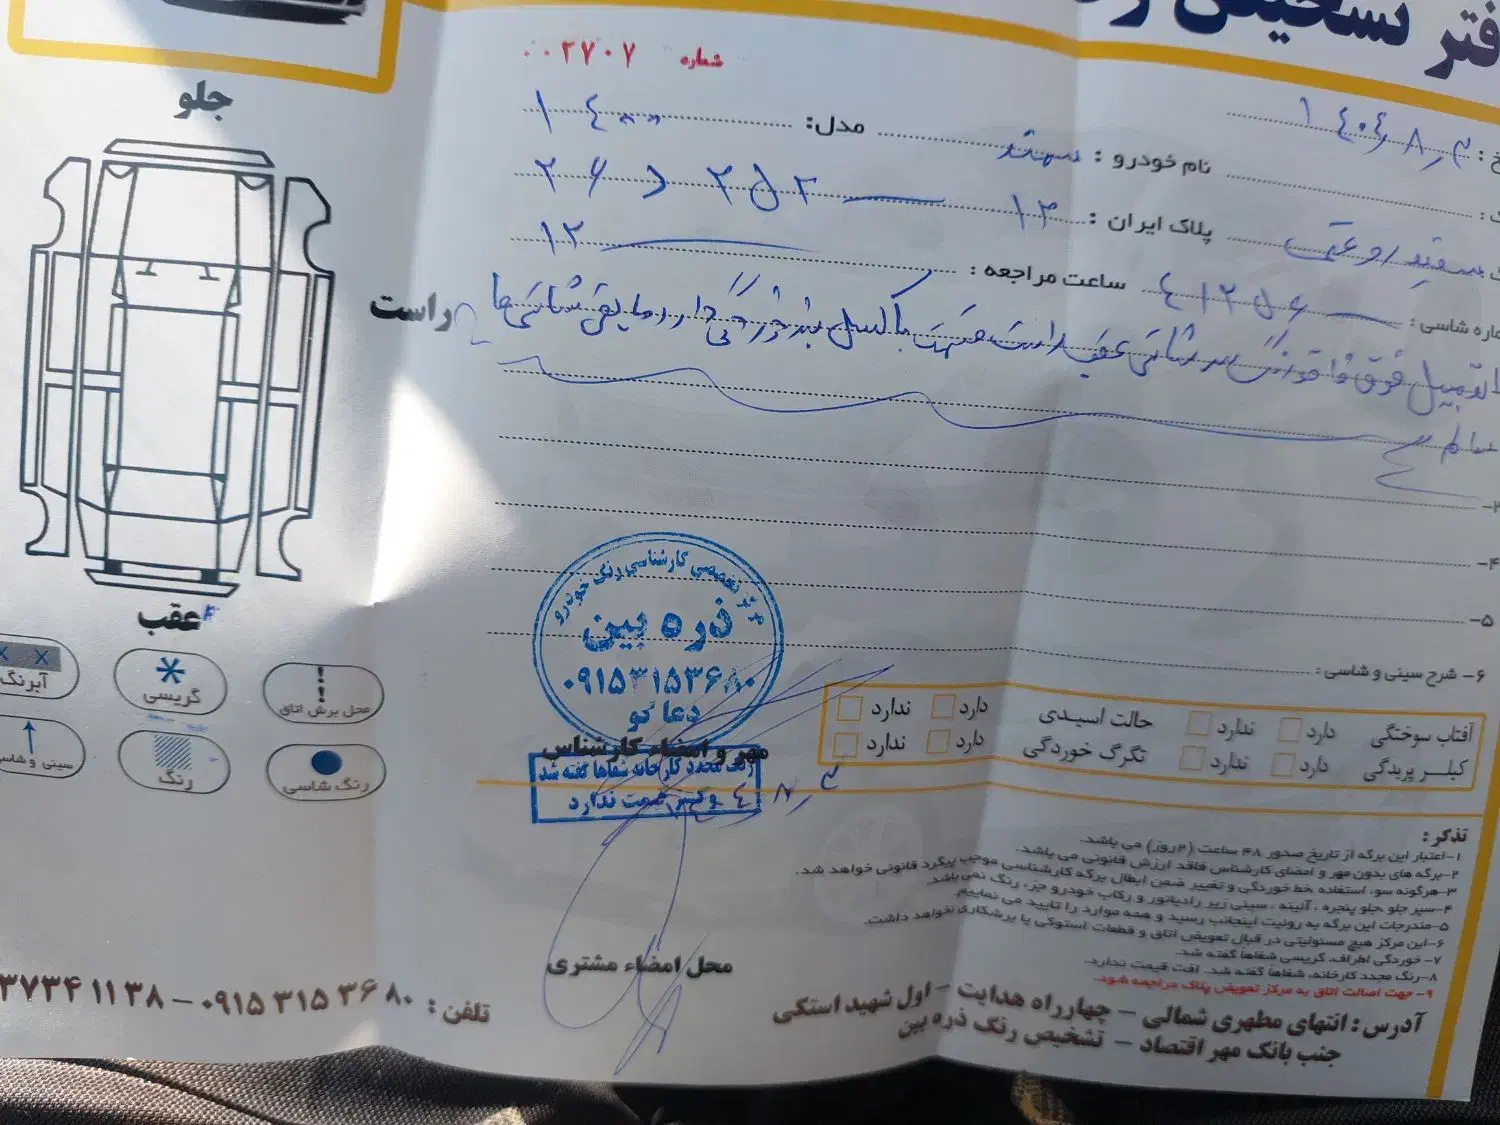 شماره ۰۰۲۷۰۷
۱۴۰۴٫۸٫۳
نام خودرو : سمند مدل: ۱۴۰۰
سفید روغنی پلاک ایران : ۱۲
شماره شاسی : ۴۱۲۵۶ ساعت مراجعه : ۱۲
اتومبیل فوق فاقد رنگ سرشاسی عقب راست جهت باکسل بند خوردگی دارد مابقی شاسی ها
سالم
۳-
۴-
۵-
۶- شرح سینی و شاسی :
جلو
راست
عقب
آبرنگ
گریسی
محل برش اتاق
سینی و شاسی
رنگ
رنگ شاسی
دفتر تخصصی کارشناسی رنگ خودرو
ذره بین
۰۹۱۵۳۱۵۳۶۸۰
دعاگو
مهر و امضاء کارشناس
رنگ مجدد کارخانه شفاها گفته شد
و کسر قیمت ندارد
آفتاب سوختگی دارد ندارد حالت اسیدی دارد ندارد
کیلر پریدگی دارد ندارد تگرگ خوردگی دارد ندارد
تذکر :
۱-اعتبار این برگه از تاریخ صدور ۴۸ ساعت (۲روز) می باشد.
۲-برگه های بدون مهر و امضای کارشناس فاقد ارزش قانونی می باشد.
۳-هرگونه سوء استفاده ،خط خوردگی و تغییر ضمن ابطال برگه کارشناسی موجب پیگرد قانونی خواهد شد.
۴-سپر جلو ،جلو پنجره ، آئینه ، سینی زیر رادیاتور و رکاب خودرو جزء رنگ نمی باشد.
۵-مندرجات این برگه به رویت اینجانب رسید و همه موارد را تایید می نمایم.
۶-این مرکز هیچ مسئولیتی در قبال تعویض اتاق و قطعات استوکی یا برشکاری نخواهد داشت.
۷- خوردگی اطراف، گریسی شفاها گفته شد.
۸-رنگ مجدد کارخانه، شفاها گفته شد. افت قیمت ندارد.
۹- جهت اصالت اتاق به مرکز تعویض پلاک مراجعه شود.
محل امضاء مشتری
آدرس : انتهای مطهری شمالی – چهارراه هدایت – اول شهید استکی
جنب بانک مهر اقتصاد – تشخیص رنگ ذره بین
تلفن : ۰۹۱۵ ۳۱۵ ۳۶ ۸۰ – ۳۷۳۴ ۱۱ ۳۸